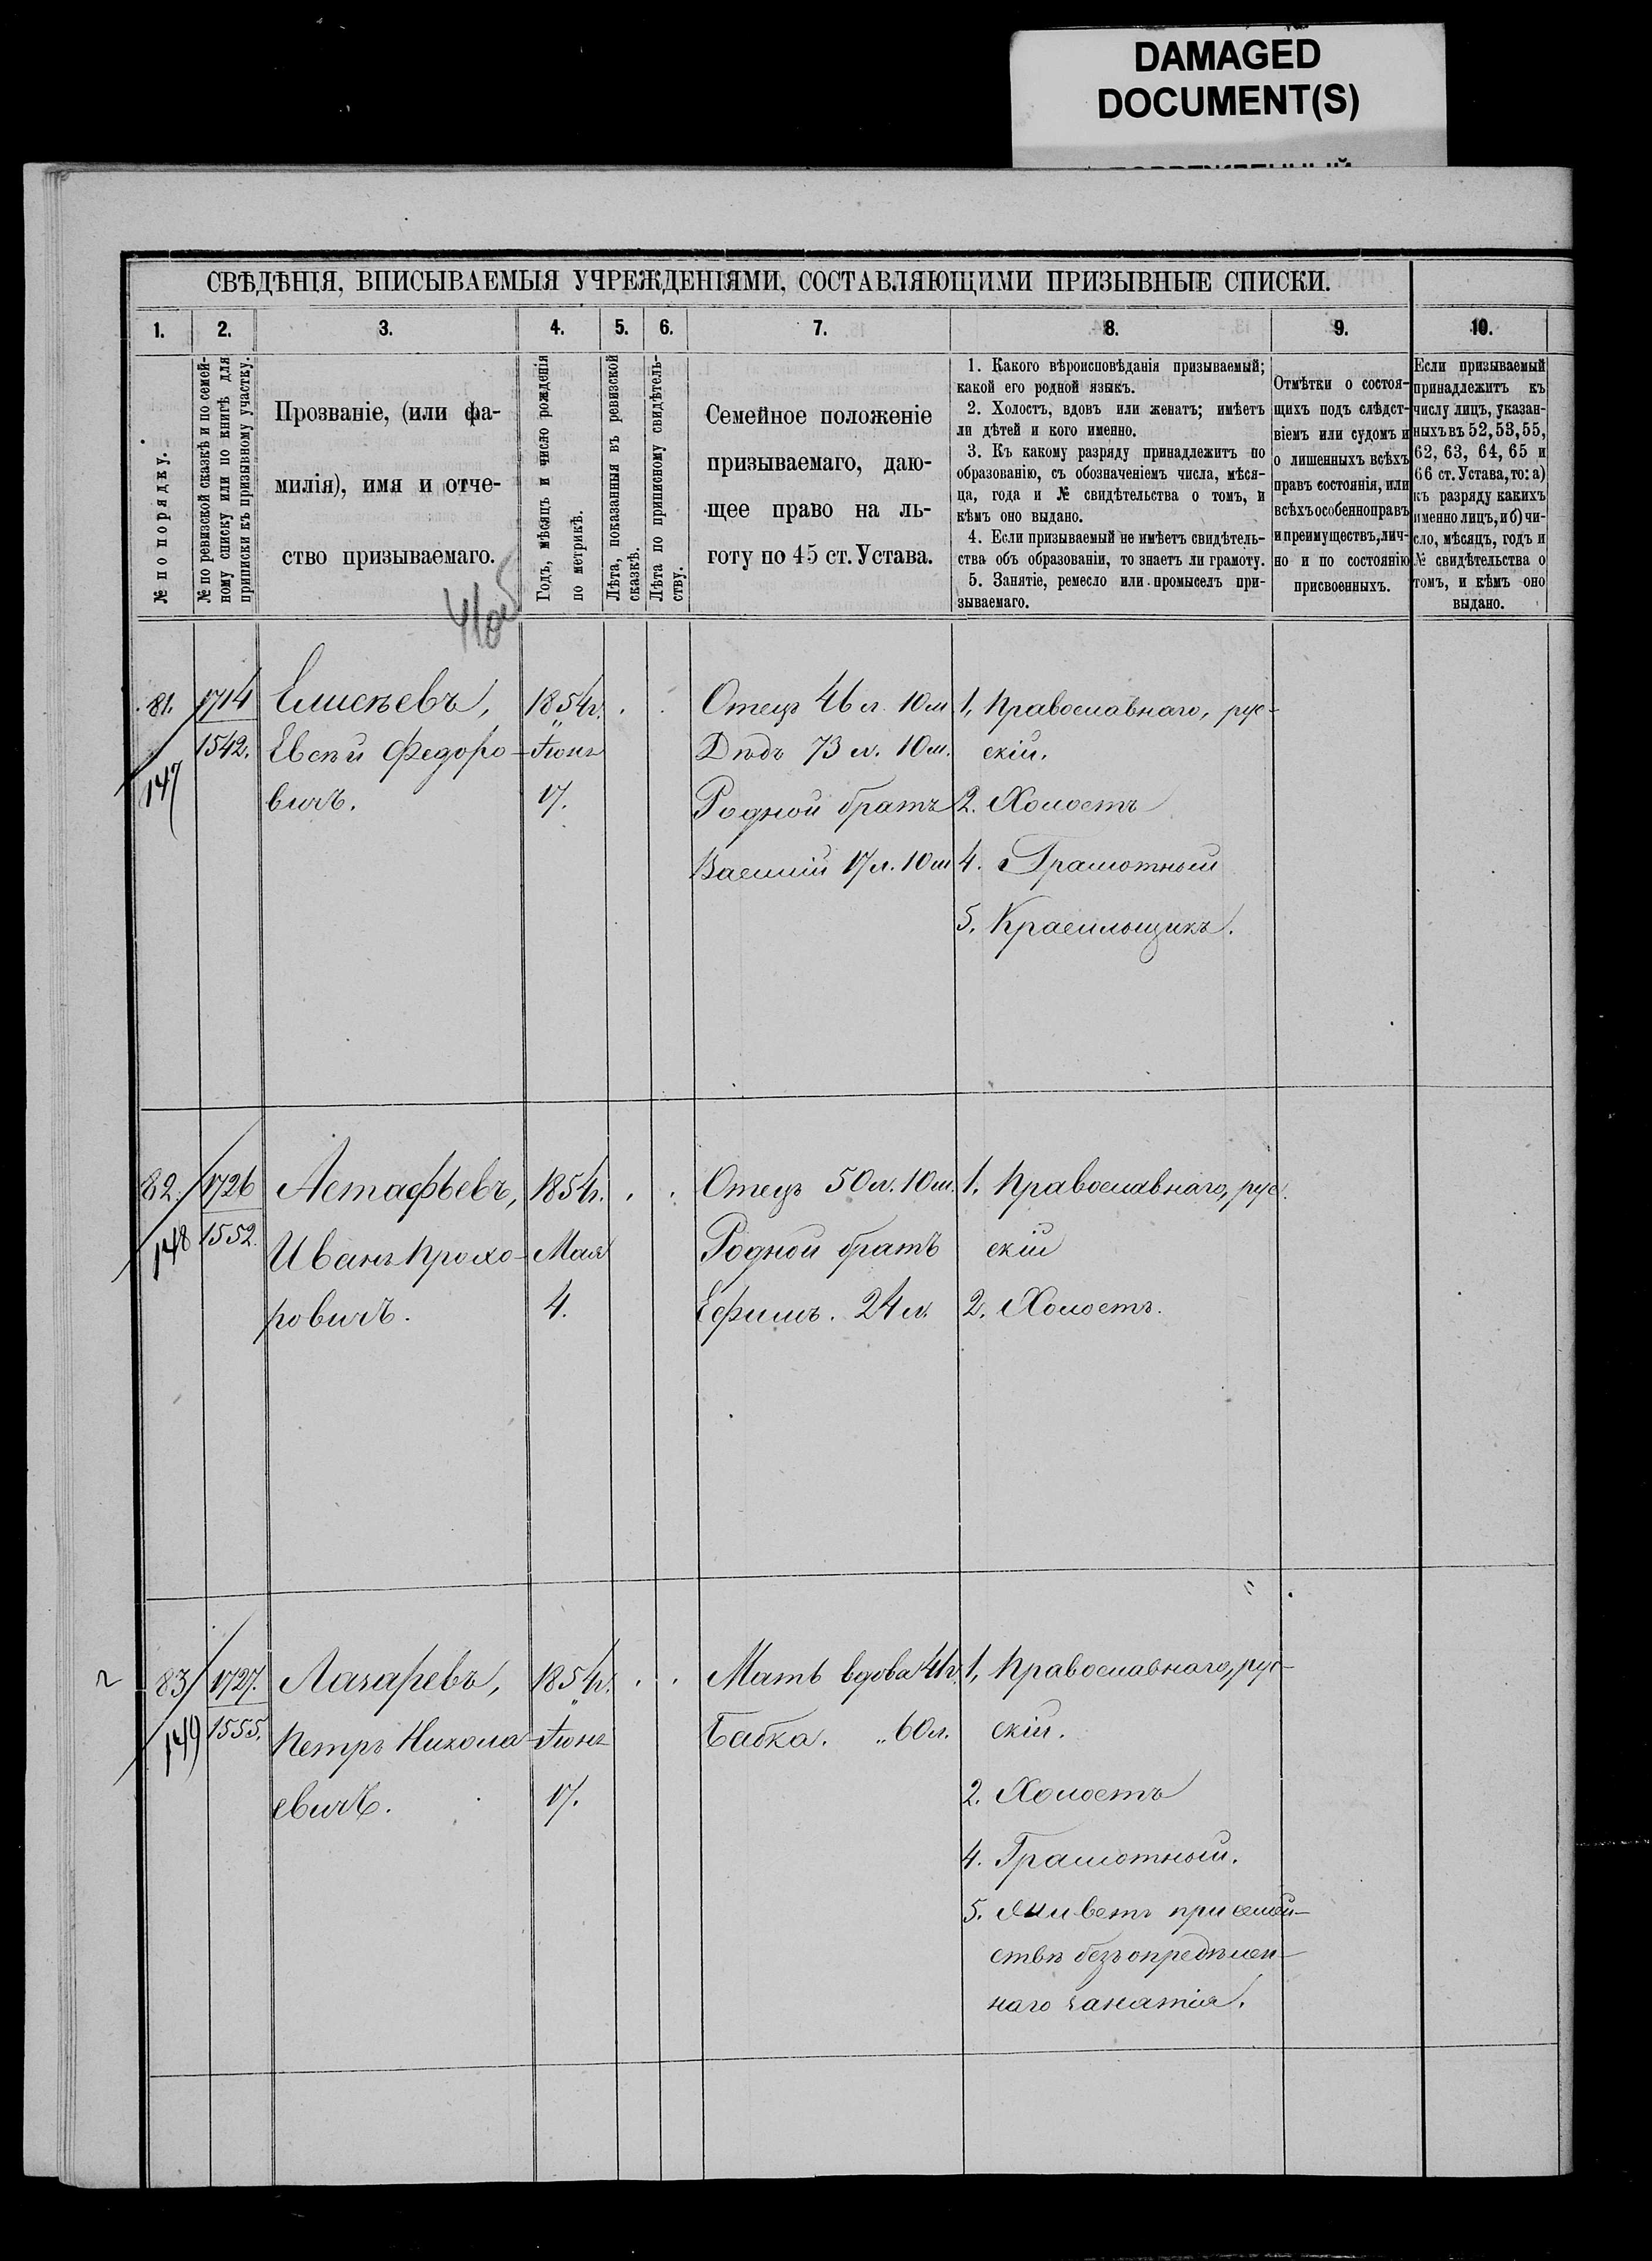 DAMAGED
DOCUMENT(S)
СВѢДѢНІЯ, ВПИСЫВАЕМЫЯ УЧРЕЖДЕНІЯМИ, СОСТАВЛЯЮЩИМИ ПРИЗЫВНЫЕ СПИСКИ.
1.
2.
3.
4.
5.
6.
7.
8.
9.
10.
№ по порядку.
№ по ревизской сказкѣ и по семей-
ному списку или по книгѣ для
приписки къ призывному участку.
Прозваніе, (или фа-
милія), имя и отче-
ство призываемаго.
Годъ, мѣсяцъ и число рожденія
по метрикѣ.
Лѣта, показанныя въ ревизской
сказкѣ.
Лѣта по приписному свидѣтель-
ству.
Семейное положеніе
призываемаго, даю-
щее право на ль-
готу по 45 ст. Устава.
1. Какого вѣроисповѣданія призываемый;
какой его родной языкъ.
2. Холостъ, вдовъ или женатъ; имѣетъ
ли дѣтей и кого именно.
3. Къ какому разряду принадлежитъ по
образованію, съ обозначеніемъ числа, мѣся-
ца, года и № свидѣтельства о томъ, и
кѣмъ оно выдано.
4. Если призываемый не имѣетъ свидѣтель-
ства объ образованіи, то знаетъ ли грамоту.
5. Занятіе, ремесло или промыселъ при-
зываемаго.
Отмѣтки о состоя-
щихъ подъ слѣдст-
віемъ или судомъ и
о лишенныхъ всѣхъ
правъ состоянія, или
всѣхъ особенно правъ
и преимуществъ, лич-
но и по состоянію
присвоенныхъ.
Если призываемый
принадлежитъ къ
числу лицъ, указан-
ныхъ въ 52, 53, 55,
62, 63, 64, 65 и
66 ст. Устава, то: а)
къ разряду какихъ
именно лицъ, и б) чи-
сло, мѣсяцъ, годъ и
№ свидѣтельства о
томъ, и кѣмъ оно
выдано.
81. 1714 Елисѣевъ, 1854г. Отецъ 46 л. 10 м 1, Православнаго, рус-
1542. Евсѣй Федоро- Іюня Дѣдъ 73 л. 10 м. скій.
147 вичъ. 17. Родной братъ 2. Холостъ
Василій 17 л. 10 м 4. Грамотный
5. Красильщикъ.
82. 1726 Астафьевъ, 1854г. Отецъ 50 л. 10 м. 1. Православнаго, рус.
148 1552. Иванъ Прохо- Мая Родной братъ скій
ровичъ. 4. Ефимъ. 24 л. 2. Холостъ.
83 1727. Лазаревъ, 1854г. Мать вдова 41 г. 1, Православнаго, рус-
149 1555. Петръ Никола- Іюня Бабка. „ 60 л. скій.
евичъ. 17. 2. Холостъ
4. Грамотный.
5. Живетъ при семей-
ствѣ безъ опредѣлен-
наго занятія.